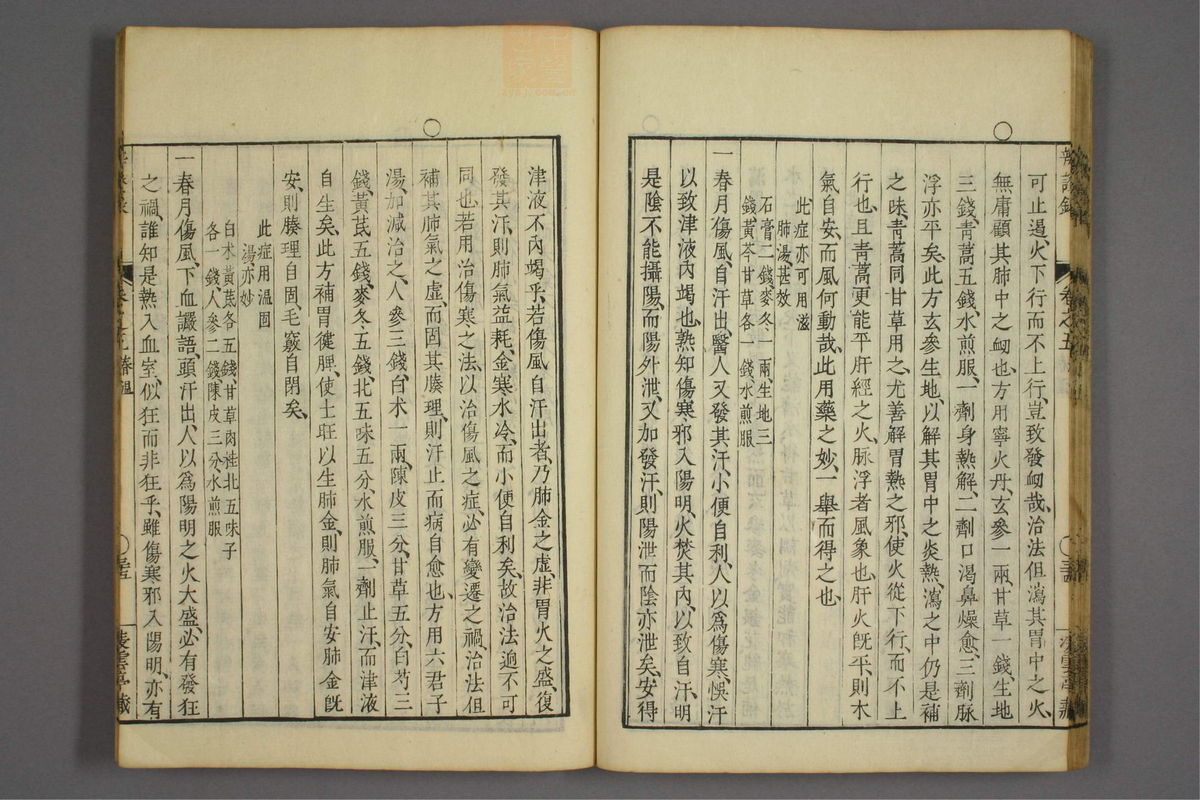 可止遏、火下行而不上行、豈致發衂哉、治法但瀉其胃中之火、
無庸顧其肺中之衂也、方用寧火丹、玄參一兩、甘草一錢、生地
三錢、青蒿五錢、水煎服、一劑身熱解、二劑口渴鼻燥愈、三劑脉
浮亦平矣、此方玄參生地、以解其胃中之炎熱、瀉之中仍是補
之味、青蒿同甘草用之、尤善解胃熱之邪、使火從下行、而不上
行也、且青蒿更能平肝經之火、脉浮者風象也、肝火既平、則木
氣自安、而風何動哉、此用藥之妙、一舉而得之也、
此症亦可用滋
肺湯、甚效
石膏二錢、麥冬一兩、生地三
錢、黄芩甘草各一錢、水煎服
一春月傷風、自汗出、醫人又發其汗、小便自利、人以爲傷寒、悞汗
以致津液內竭也、孰知傷寒邪入陽明、火焚其內、以致自汗、明
是陰不能攝陽、而陽外泄、又加發汗、則陽泄而陰亦泄矣、安得
津液不內竭乎、若傷風自汗出者、乃肺金之虛、非胃火之盛、復
發其汗、則肺氣益耗、金寒水冷、而小便自利矣、故治法逈不可
同也、若用治傷寒之法、以治傷風之症、必有變遷之禍、治法但
補其肺氣之虛、而固其腠理、則汗止而病自愈也、方用六君子
湯、加減治之、人參三錢、白术一兩、陳皮三分、甘草五分、白芍三
錢、黄芪五錢、麥冬五錢、北五味五分、水煎服、一劑止汗、而津液
自生矣、此方補胃徤脾、使土旺以生肺金、則肺氣自安、肺金旣
安、則腠理自固、毛竅自閉矣、
此症用温固
湯亦妙
白术黄芪各五錢、甘草肉桂北五味子
各一錢、人參二錢、陳皮三分、水煎服
一春月傷風、下血譫語、頭汗出、人以爲陽明之火大盛、必有發狂
之禍、誰知是熱入血室、似狂而非狂乎、雖傷寒邪入陽明、亦有